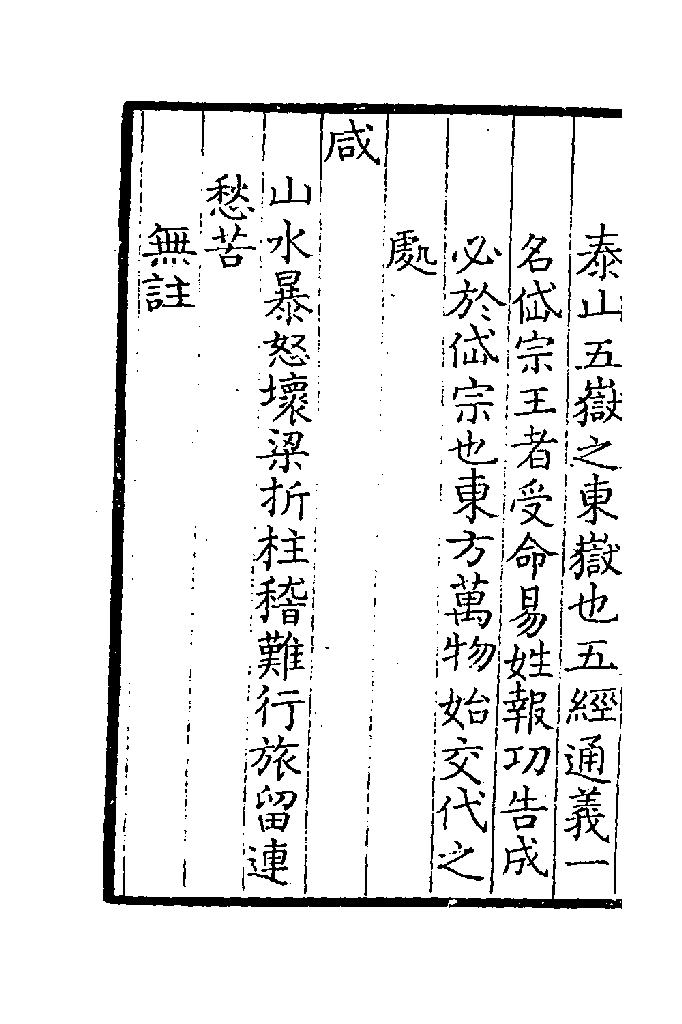 泰山五嶽之東嶽也五經通義一
名岱宗王者受命易姓報功告成
必於岱宗也東方萬物始交代之
處
咸
山水暴怒壞梁折柱稽難行旅留連
愁苦
無註